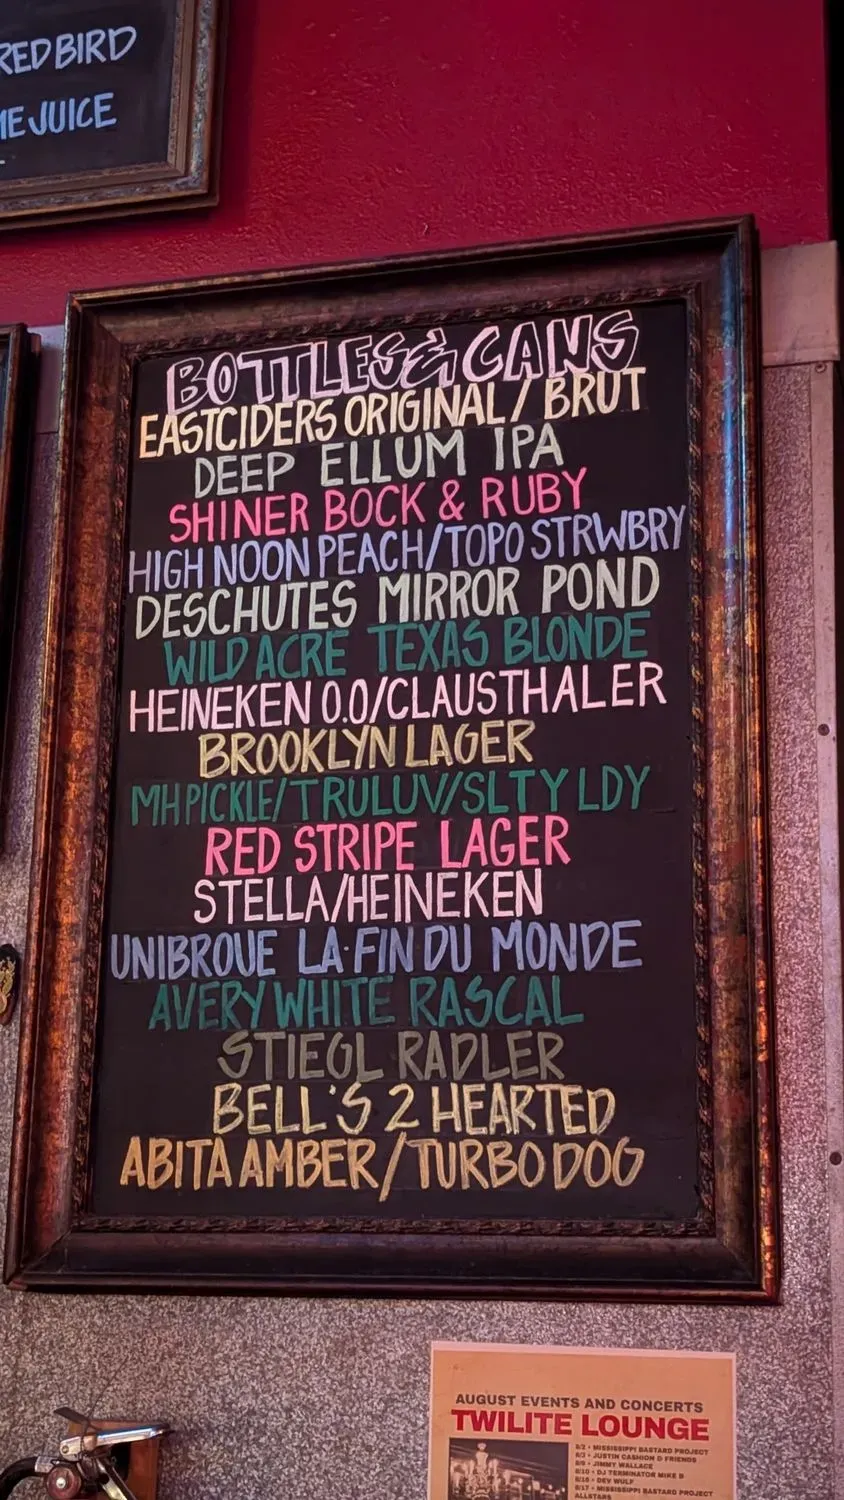 REDBIRD
JUICE
BOTTLES & CANS
EASTCIDERS ORIGINAL / BRUT
DEEP ELLUM IPA
SHINER BOCK & RUBY
HIGH NOON PEACH/TOPO STRWBRY
DESCHUTES MIRROR POND
WILD ACRE TEXAS BLONDE
HEINEKEN 0.0/CLAUSTHALER
BROOKLYN LAGER
MH PICKLE/TRULUV/SLTY LDY
RED STRIPE LAGER
STELLA/HEINEKEN
UNIBROUE LA·FIN DU MONDE
AVERY WHITE RASCAL
STIEGL RADLER
BELL'S 2 HEARTED
ABITA AMBER/TURBO DOG
AUGUST EVENTS AND CONCERTS
TWILITE LOUNGE
8/2 • MISSISSIPPI BASTARD PROJECT
8/3 • JUSTIN CASHION & FRIENDS
8/9 • JIMMY WALLACE
8/10 • DJ TERMINATOR MIKE B
8/16 • DEV WULF
8/17 • MISSISSIPPI BASTARD PROJECT
ALLSTARS